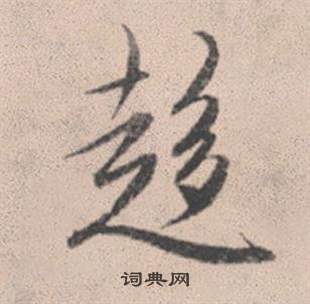 趍
词典网